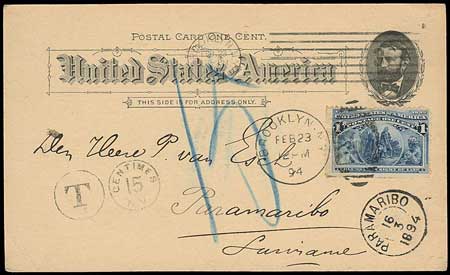 POSTAL CARD ONE CENT.
United States of America
THIS SIDE IS FOR ADDRESS ONLY.
15
BROOKLYN, N.Y.
FEB 23
94
1
1
Den Heere P. van Esch
T
CENTIMES
15
N.Y.
Paramaribo
Suriname
PARAMARIBO
16
3
1894